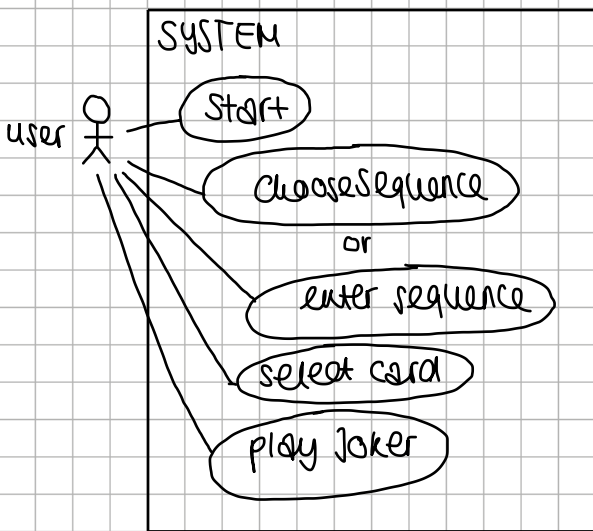 SYSTEM
Start
user
choosesequence
or
enter sequence
select card
play Joker